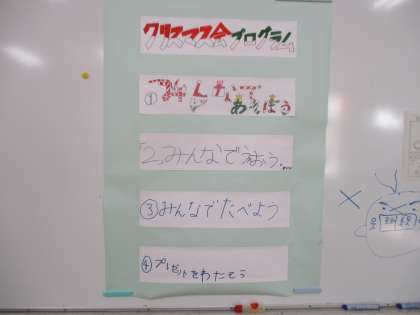 クリスマス会プログラム
①みんなであそぼう
2,みんなで
③みんなでたべよう
④プレゼントをわたそう